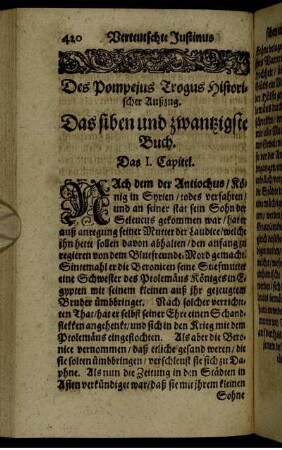 420 Verteutschte Justinus
Des Pompejus Trogus Histori-
scher Außzug.
Das siben und zwantzigste
Buch.
Das I. Capitel.
NAch dem der Antiochus/ Kö-
nig in Syrien/ todes verfahren/
und an seiner stat sein Sohn der
Seleucus gekommen war/ hatte
auß anregung seiner Mutter der Laudice/ welche
ihn hette sollen davon abhalten/ den anfang zu
regieren von dem Blutfreunde-Mord gemacht.
Sintemahl er die Beronicen seine Stiefmutter
eine Schwester des Prolemäus Königes in E-
gypten mit seinem kleinen auß ihr gezeugten
Bruder ümbbringer. Nach solcher verrichte-
ten That/ hat er selbst seiner Ehre einen Schand-
flekken angehenkt/ und sich in den Krieg mit dem
Ptolemäus eingeflochten. Als aber die Bero-
nice vernommen/ daß etliche gesand weren/ die
sie solten ümbbringen/ verschleust sie sich zu Da-
phne. Als nun die Zeitung in den Städten in
Asien verkündiget war/ daß sie mit ihrem kleinen
Sohne